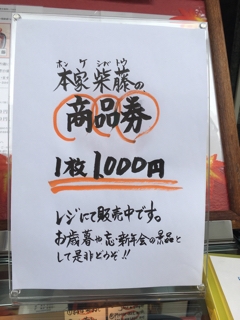 ホンケシバトウ
本家柴藤の
商品券
1枚1000円
レジにて販売中です。
お歳暮や忘新年会の景品と
して是非どうぞ!!